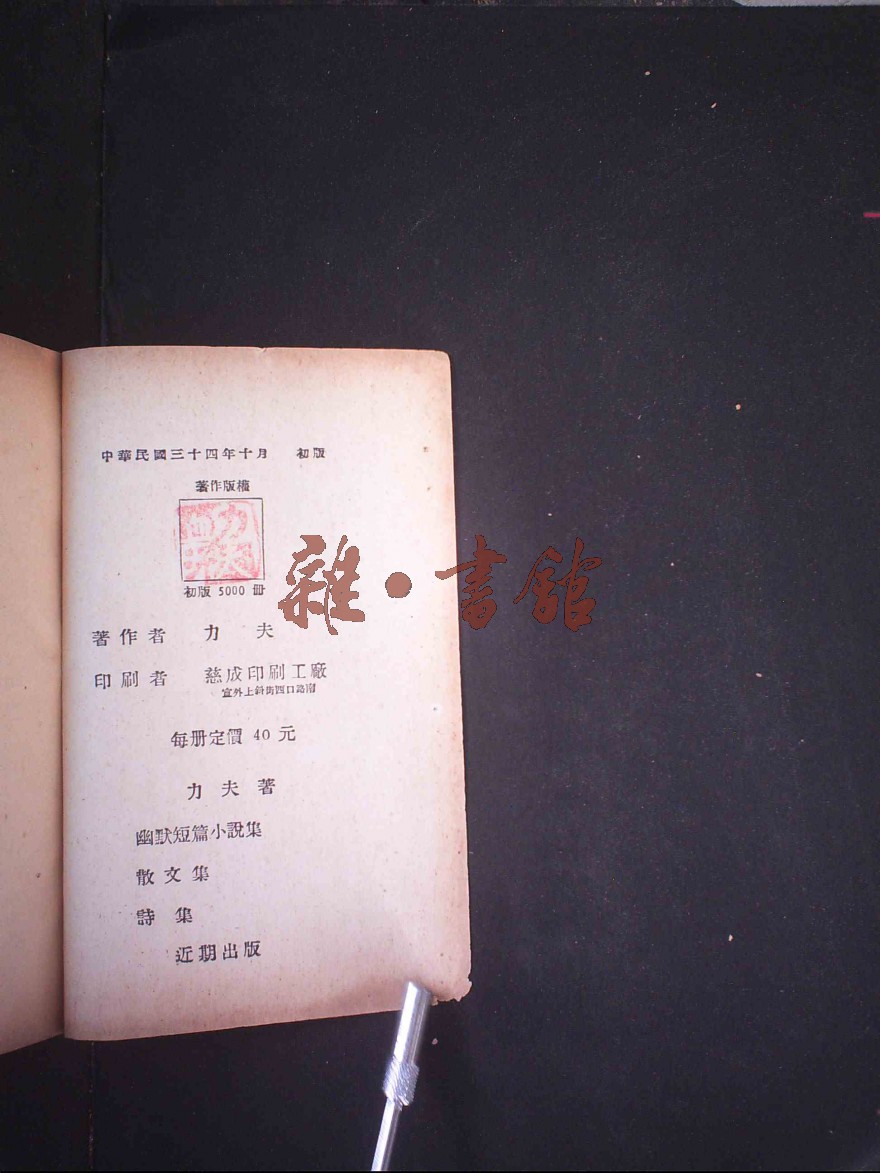 中華民國三十四年十月 初版
著作版權
力夫
初版 5000 冊
雜·書館
著作者 力夫
印刷者 慈成印刷工廠
宣外上斜街西口路南
每册定價 40 元
力夫著
幽默短篇小說集
散文集
詩集
近期出版